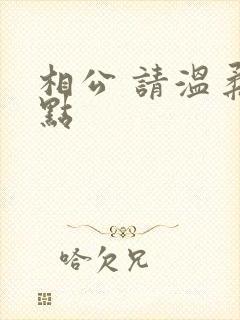 相公 請溫柔
點
哈欠兄